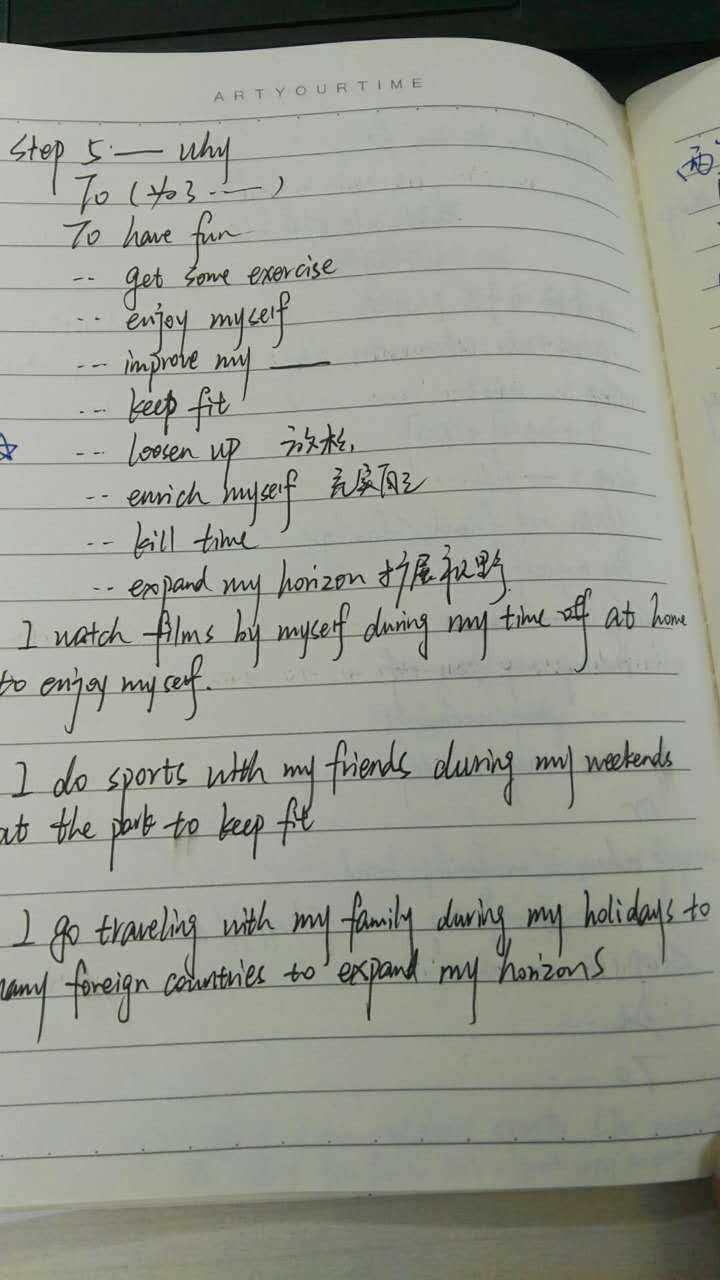 ARTYOURTIME
Step 5 — why
To (为了 —)
To have fun
-- get some exercise
-- enjoy myself
-- improve my —
-- keep fit
☆ -- loosen up 放松
-- enrich myself 充实自己
-- kill time
-- expand my horizon 扩展视野
I watch films by myself during my time off at home
to enjoy myself.
I do sports with my friends during my weekends
at the park to keep fit
I go traveling with my family during my holidays to
many foreign countries to expand my horizons